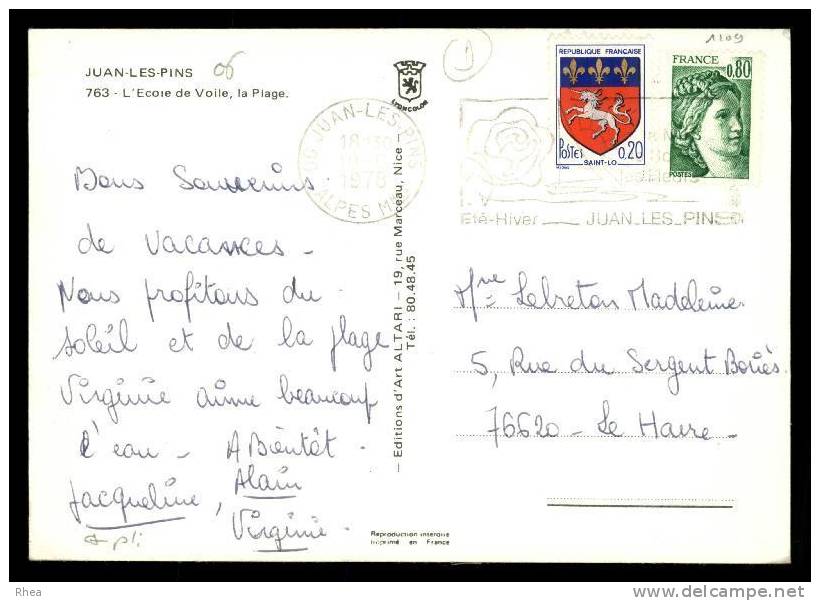 1109
JUAN-LES-PINS 06
763 - L'Ecole de Voile, la Plage.
LYONCOLOR
1
REPUBLIQUE FRANÇAISE
POSTES 0,20
SAINT-LO
FRANCE
0,80
POSTES
JUAN-LES-PINS
18H30
1978
ALPES MMES
Eté-Hiver JUAN_LES_PINS
Bons Souvenirs
de Vacances -
Nous profitons du
soleil et de la plage
Virginie aime beaucoup
l'eau - A Bientôt.
Jacqueline, Alain
Virginie.
+ pli
— Editions d'Art ALTARI — 19, rue Marceau, Nice —
Tél. : 80.48.45
Mme Lebreton Madeleine
5, Rue du Sergent Boués
76620 - Le Havre -
Reproduction interdite
Imprimé en France
Rhea
delcampe.net